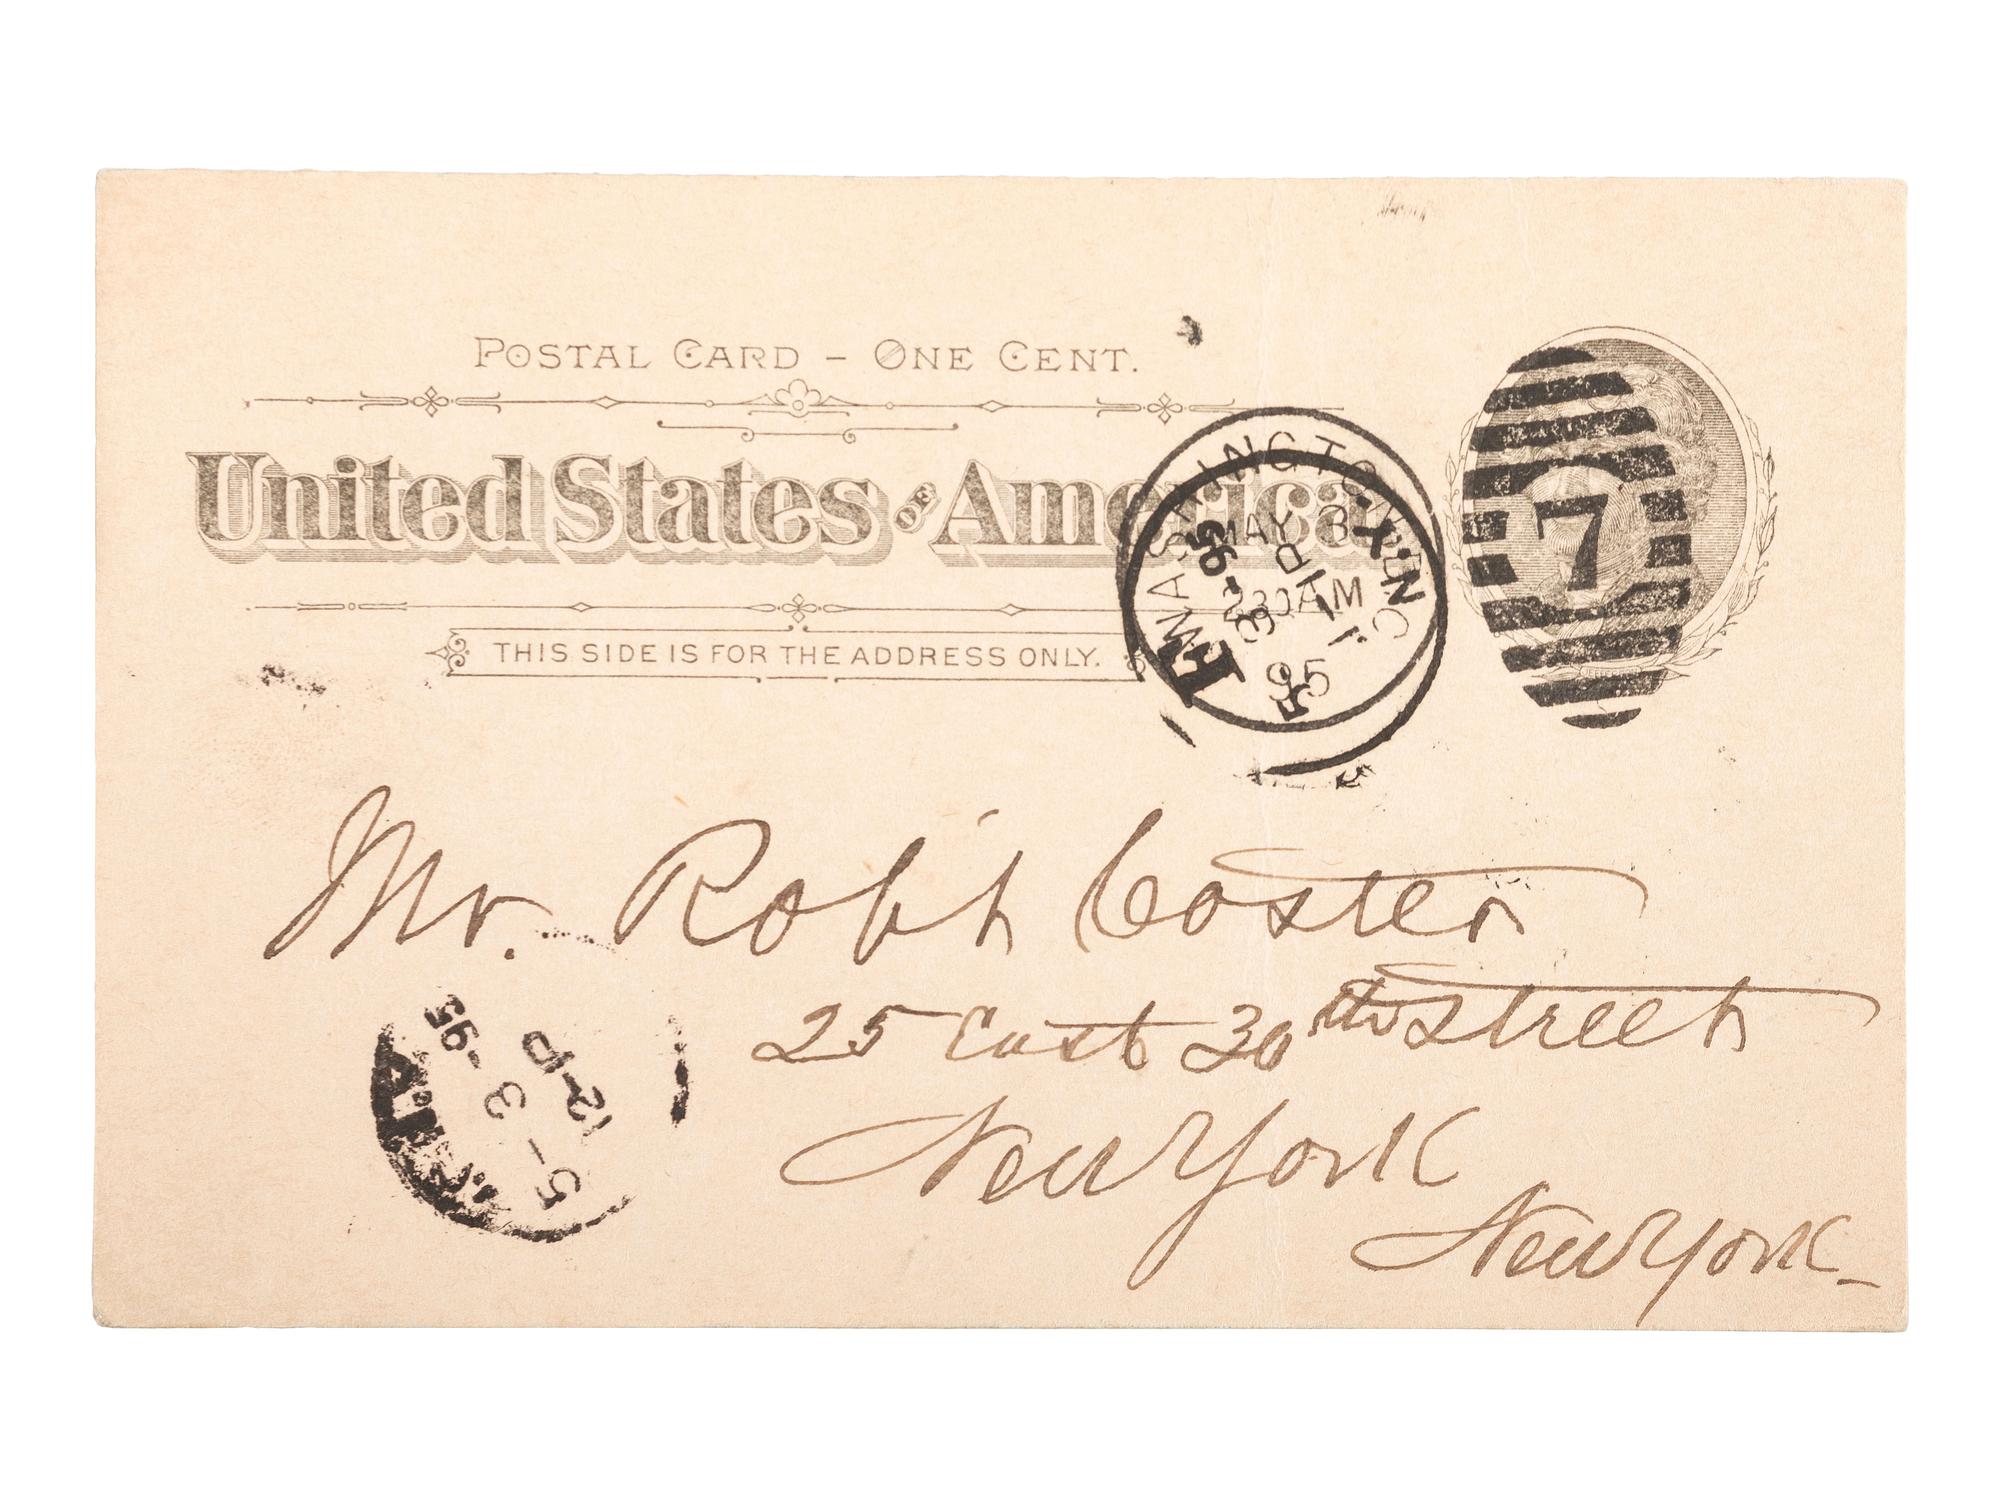 POSTAL CARD – ONE CENT.
United States OF America
THIS SIDE IS FOR THE ADDRESS ONLY.
WASHINGTON, D.C.
MAY 3
230 AM
95
N.Y.
5 - 3 - 95
1 P
F
7
Mr. Rob't Coster
25 East 30th Street
New York
New York
5 - 3 - 95
12 - P